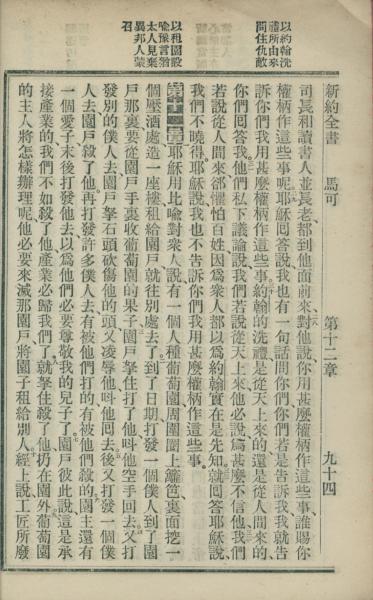 新約全書 馬可 第十二章 九十四
以約翰洗禮所由來問住仇敵
司長和讀書人並長老都到他面前來對他說你用甚麼權柄作這些事誰賜你
權柄作這些事呢耶穌回答說我也有一句話問你們你們若是告訴我我就告
訴你們我用甚麼權柄作這些事約翰的洗禮是從天上來的還是從人間來的
你們回答我他們私下議論說我們若說從天上來他必說爲甚麼不信他我們
若說從人間來卻懼怕百姓因爲衆人都以爲約翰實在是先知就回答耶穌說
我們不曉得耶穌說我也不告訴你們我用甚麼權柄作這些事
以租園設喻豫言猶太人見棄異邦人蒙召
第十二章耶穌用比喻對衆人說有一個人種葡萄園周圍圈上籬笆裏面挖一
個壓酒處造一座樓租給園戶就往別處去了到了日期打發一個僕人到了園
戶那裏要從園戶手裏收葡萄園的果子園戶拏住打了他呌他空手回去又打
發別的僕人去園戶拏石頭砍傷他的頭又凌辱他呌他回去後又打發一個僕
人去園戶殺了他再打發許多僕人去有被他們打的有被他們殺的園主還有
一個愛子末後打發他去以爲他們必要尊敬我的兒子了園戶彼此說這是承
接產業的我們不如殺了他產業必歸我們了就拏住殺了他仍在園外葡萄園
的主人將怎樣辦理呢他必要來滅那園戶將園子租給別人經上說工匠所廢